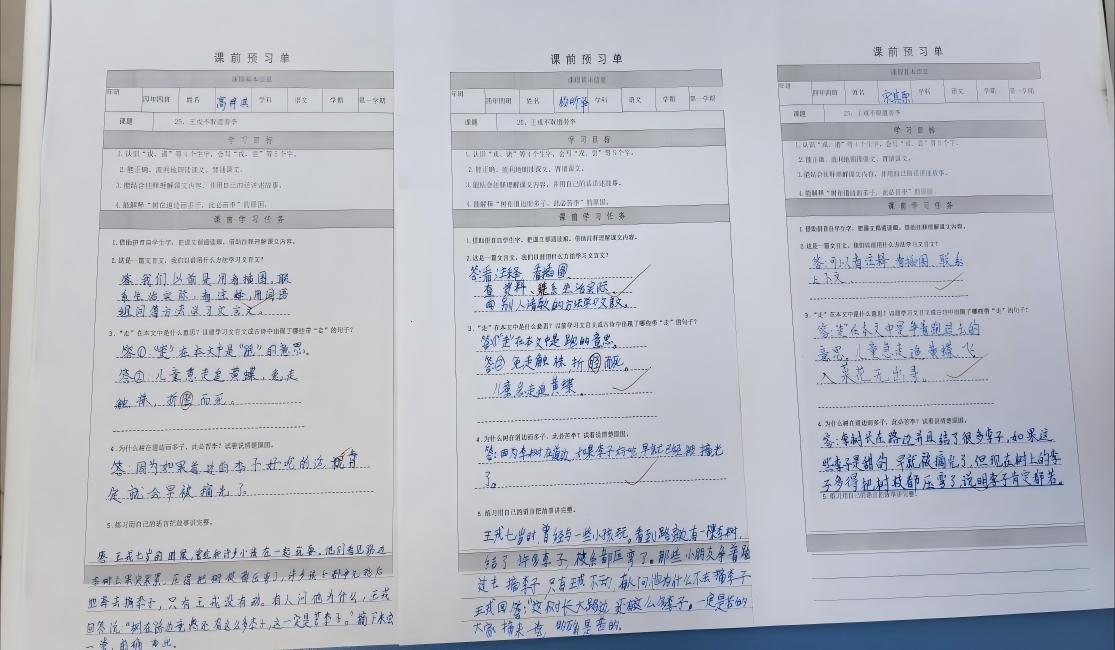 课前预习单
课程基本信息
年班 四年四班 姓名 学科 语文 学期 第一学期
课题 25、王戎不取道旁李
学习目标
1.认识“戎、诸”等4个生字，会写“戎、尝”等5个字。
2.能正确、流利地朗读课文，背诵课文。
3.能结合注释理解课文内容，并用自己的话讲述故事。
4.能解释“树在道边而多子，此必苦李”的原因。
课前学习任务
1.借助拼音自学生字，把课文都道读顺，借助注释理解课文内容。
2.这是一篇文言文，我们以前用什么方法学习文言文？
答：我们以前是用看插图，联
系生活实际，看注释，用词语
组词等方法学习文言文。
3.“走”在本文中是什么意思？以前学习文言文或古诗中出现了哪些带“走”的句子？
答①“走”在本文中是“跑”的意思。
答②：儿童急走追黄蝶，兔走
触株，折 而死。
4.为什么树在道边而多子，此必苦李？试着说清楚原因。
答：因为如果着 的李子好吃的话
定就会早被摘光了。
5.练习用自己的语言把故事讲完整。
答：王戎七岁的时候，曾经和许多小孩在一起玩耍。他们看见路边
李树上果实累累，压得把树枝都压弯了，许多孩子都争先恐后
地奔去摘李子，只有王戎没有动。有人问他为什么，王戎
回答说：“树在路边竟然还有这么多李子，这一定是苦李子。”摘下来尝
一尝，的确如此。
课前预习单
课程基本信息
年班 四年四班 姓名 学科 语文 学期 第一学期
课题 25、王戎不取道旁李
学习目标
1.认识“戎、诸”等4个生字，会写“戎、尝”等5个字。
2.能正确、流利地朗读课文，背诵课文。
3.能结合注释理解课文内容，并用自己的话讲述故事。
4.能解释“树在道边而多子，此必苦李”的原因。
课前学习任务
1.借助拼音自学生字，把课文都道读顺，借助注释理解课文内容。
2.这是一篇文言文，我们以前用什么方法学习文言文？
答：看注释、看插图、
查资料、联系生活实际、
用别人请教的方法学习文言文。
3.“走”在本文中是什么意思？以前学习文言文或古诗中出现了哪些带“走”的句子？
答①“走”在本文中是跑的意思。
答② 兔走触株，折 而死。
儿童急走追黄蝶。
4.为什么树在道边而多子，此必苦李？试着说清楚原因。
答：因为李树在道边，如果李子好吃早就已经被摘光
了。
5.练习用自己的语言把故事讲完整。
王戎七岁时，曾经与一些小孩玩。看到路旁有一棵李树，
结了许多李子，枝条都压弯了。那些小朋友争着跑
过去摘李子，只有王戎不动，有人问他为什么不去摘李子
王戎回答：“这树长大路边，还有这么多李子。一定是苦的
大家摘来一尝，的确是苦的。
课前预习单
课程基本信息
年班 四年四班 姓名 学科 语文 学期 第一学期
课题 25、王戎不取道旁李
学习目标
1.认识“戎、诸”等4个生字，会写“戎、尝”等5个字。
2.能正确、流利地朗读课文，背诵课文。
3.能结合注释理解课文内容，并用自己的话讲述故事。
4.能解释“树在道边而多子，此必苦李”的原因。
课前学习任务
1.借助拼音自学生字，把课文都道读顺，借助注释理解课文内容。
2.这是一篇文言文，我们以前用什么方法学习文言文？
答：可以看注释、看插图、联系
上下文。
3.“走”在本文中是什么意思？以前学习文言文或古诗中出现了哪些带“走”的句子？
答：“走”在本文中是争着跑过去的
意思。儿童急走追黄蝶，飞
入菜花无处寻。
4.为什么树在道边而多子，此必苦李？试着说清楚原因。
答：李树长在路边并且结了很多李子，如果这
些李子是甜的，早就被摘光了，但现在树上的李
子多得把树枝都压弯了，说明李子肯定都苦。
5.练习用自己的语言把故事讲完整。